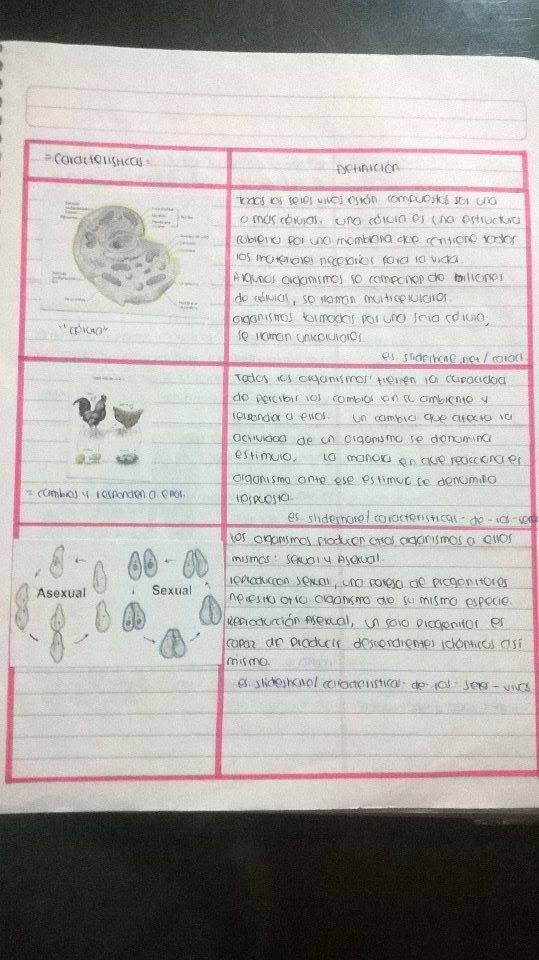 = Características =
Definición
Todos los seres vivos están compuestos por una
o más células. una célula es una estructura
cubierta por una membrana que contiene todos
los materiales necesarios para la vida.
Algunos organismos se componen de billones
de células, se llaman multicelulares.
organismos formados por una sola célula,
se llaman unicelulares.
es. slideshare.net/
"célula"
Todos los organismos tienen la capacidad
de percibir los cambios en su ambiente y
responder a ellos. un cambio que afecta la
actividad de un organismo se denomina
estimulo, la manera en que reacciona es
organismo ante ese estimulo se denomina
respuesta.
es. slideshare/ características-de-los-sere
= cambios y responden a ellos.
los organismos producen otros organismos a ellos
mismos: sexual y Asexual.
reproducción sexual, una pareja de progenitores
necesita otro organismo de su misma especie.
Reproducción Asexual, un solo progenitor es
capaz de producir descendientes idénticos así
mismo.
es. slideshare/ características-de-los-seres-vivos
Asexual
Sexual